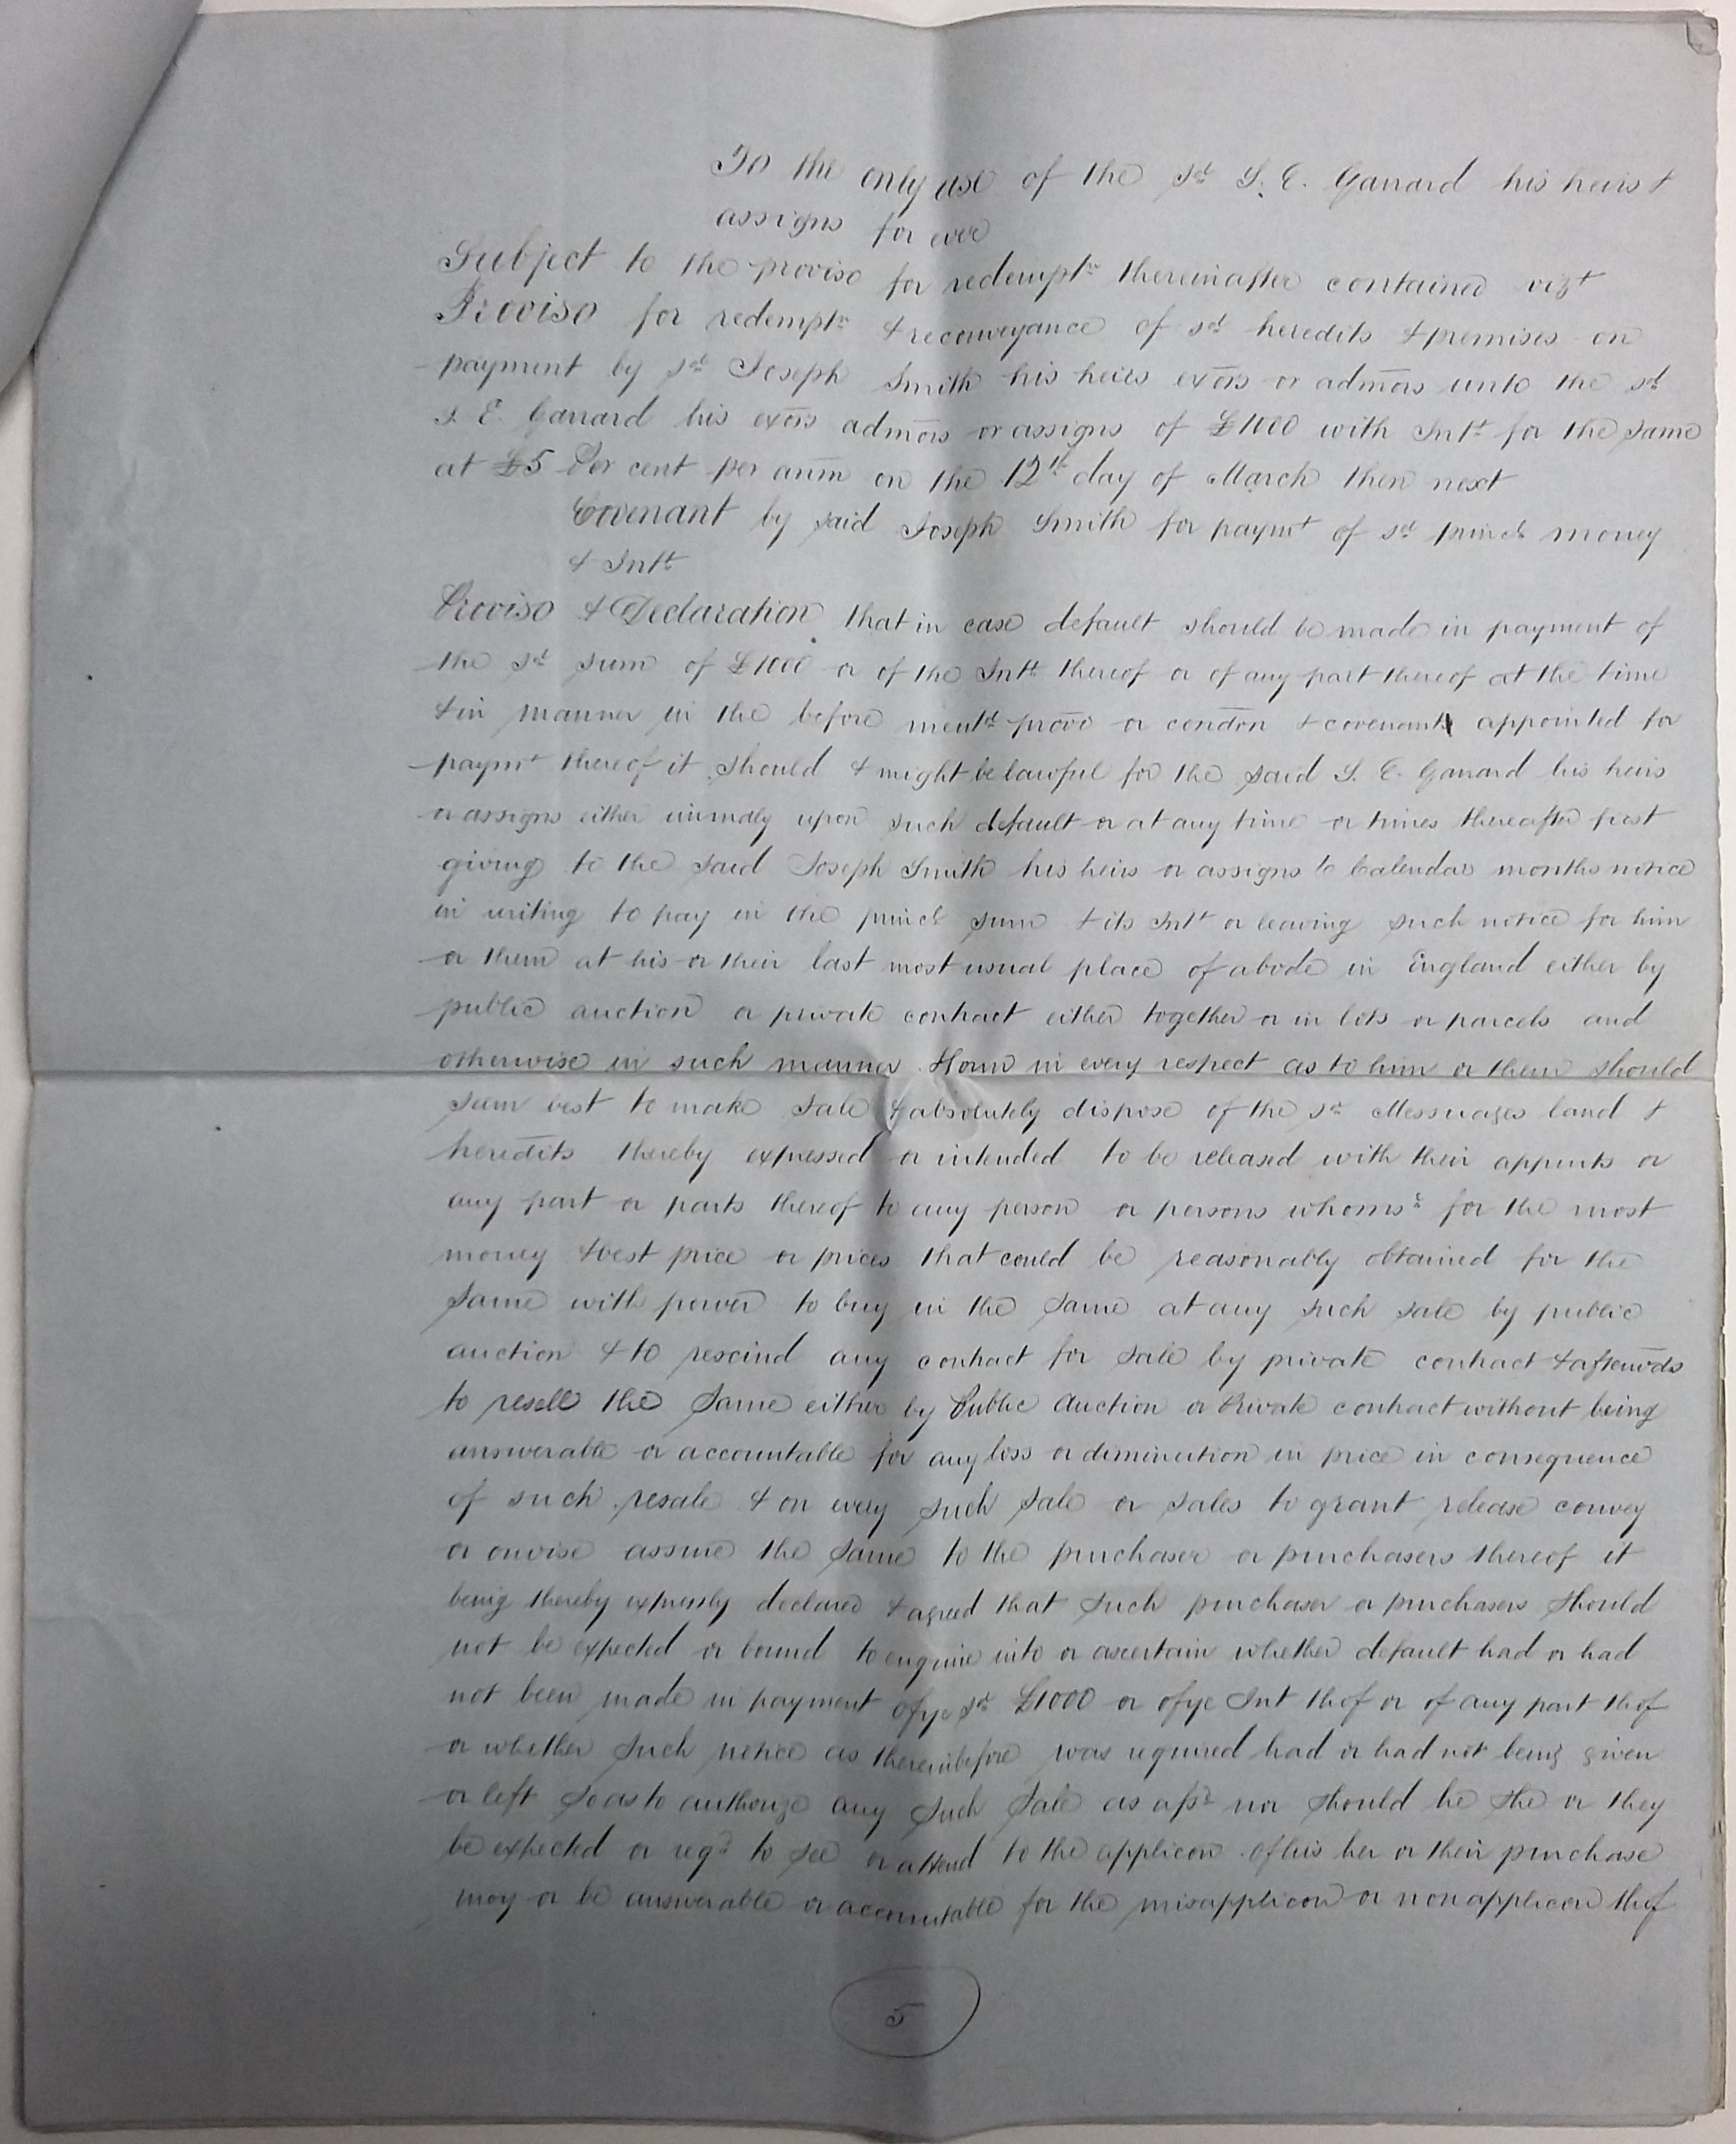 To the only use of the sd S. E. Garrard his heirs &
assigns for ever
Subject to the proviso for redemptn thereinafter contained vizt
Proviso for redemptn & reconveyance of sd heredits & premises on
payment by sd Joseph Smith his heirs exors or admors unto the sd
S. E. Garrard his exors admors or assigns of £1000 with Intt for the same
at £5 Per cent per anm on the 12th day of March then next
Covenant by said Joseph Smith for paymt of sd princl money
& Intt
Proviso & Declaration that in case default should be made in payment of
the sd sum of £1000 or of the Intt thereof or of any part thereof at the time
& in manner in the before mentd provo or condon & covenant appointed for
paymt thereof it should & might be lawful for the said S. E. Garrard his heirs
or assigns either immdly upon such default or at any time or times thereafter first
giving to the said Joseph Smith his heirs or assigns 6 Calendar months notice
in writing to pay in the princl sum & its Intt or leaving such notice for him
or them at his or their last most usual place of abode in England either by
public auction or private contract either together or in lots or parcels and
otherwise in such manner & form in every respect as to him or them should
seem best to make sale & absolutely dispose of the sd Messuages land &
heredits thereby expressed or intended to be released with their appurts or
any part or parts thereof to any person or persons whomsr for the most
money & best price or prices that could be reasonably obtained for the
same with power to buy in the same at any such sale by public
auction & to rescind any contract for sale by private contract & afterwds
to resell the same either by Public Auction or Private contract without being
answerable or accountable for any loss or diminution in price in consequence
of such resale & on every such sale or sales to grant release convey
or onwise assure the same to the purchaser or purchasers thereof it
being thereby expressly declared & agreed that such purchaser or purchasers should
not be expected or bound to enquire into or ascertain whether default had or had
not been made in payment of ye sd £1000 or of ye Int thof or of any part thof
or whether such notice as thereinbefore was required had or had not being given
or left so as to authorize any such sale as afsd nor should he she or they
be expected or reqd to see or attend to the applicon of his her or their purchase
moy or be answerable or accountable for the misapplicon or nonapplicon thof
5